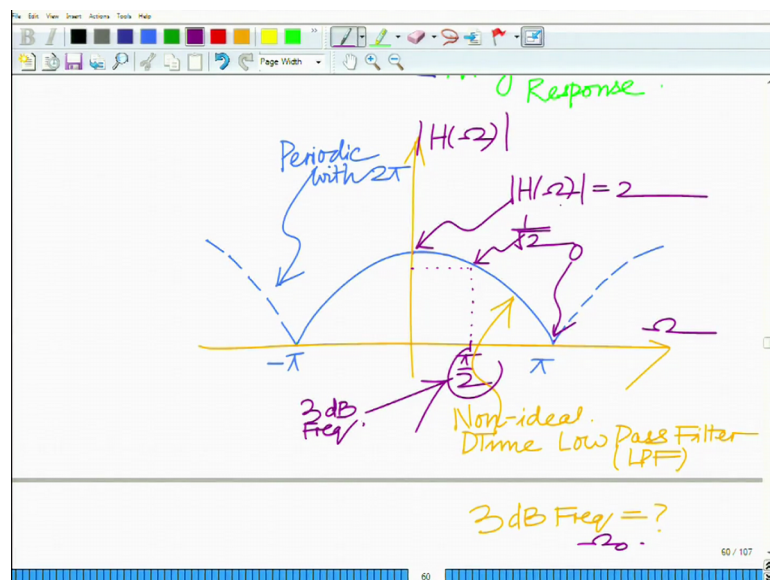 File Edit View Insert Actions Tools Help
B I
Page Width
Response.
|H(Ω)|
Periodic
with 2π
|H(Ω)| = 2
1/√2
0
Ω
-π
π/2
π
3 dB
Freq.
Non-ideal.
DTime Low Pass Filter
(LPF)
3 dB Freq = ?
Ω₀.
60 / 107
60